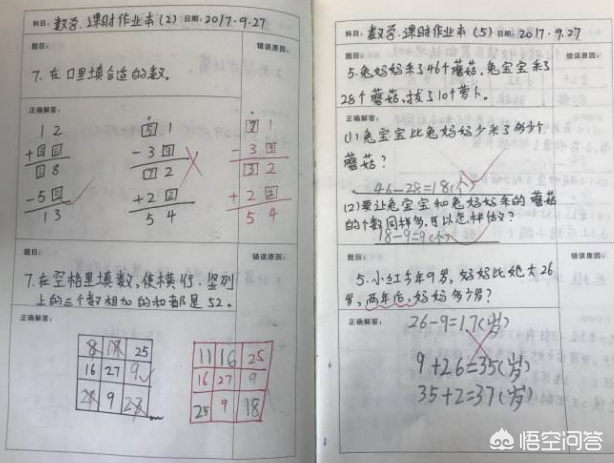 科目：数学.课时作业本(2) 日期：2017.9.27
题目： 错误原因：
7.在口里填合适的数。
正确解答：
1 2
5 1
7 1
- 3
- 3
8
2
3 2
- 5
+ 2
+ 2
1 3
5 4
5 4
题目： 错误原因：
7.在空格里填数,使横行、竖列
上的三个数相加的和都是52。
正确解答：
8 18 25
11 16 25
16 27 9
16 27 9
9
25 9 18
科目：数学.课时作业本(5) 日期：2017.9.27
题目： 错误原因：
5.兔妈妈采了46个蘑菇,兔宝宝采了
28个蘑菇,拔了10个萝卜。
正确解答：
(1)兔宝宝比兔妈妈少采了多少个
蘑菇？
46-28=18(个)
(2)要让兔宝宝和兔妈妈采的蘑菇
的个数同样多,可以怎样做？
18-9=9(个)
题目： 错误原因：
5.小红今年9岁,妈妈比她大26
岁,两年后,妈妈多少岁？
正确解答：
26-9=17(岁)
9+26=35(岁)
35+2=37(岁)
悟空问答